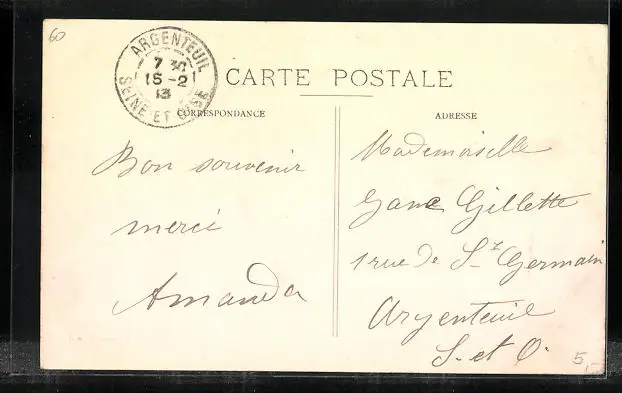 60
ARGENTEUIL
7 30
15 - 2
13
SEINE ET OISE
CARTE POSTALE
CORRESPONDANCE
ADRESSE
Bon souvenir
merci
Amanda
Mademoiselle
Gillette
1 rue de St Germain
Argenteuil
S. et O.
5,-